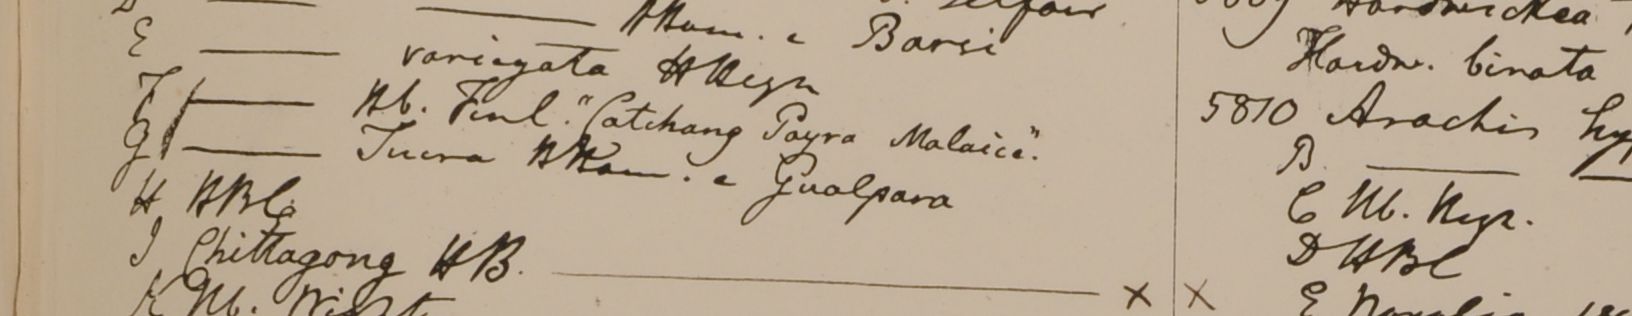 HHam. e Barsi
E —— variegata HHeyn
F —— Hb. Finl. "Catchang Payra Malaice".
G —— Tuera HHam. e Gualpara
H HBC
I Chittagong HB. —— ×
K Hb. Wight
Hardwickea
Hardw. binata
5810 Arachis hyp
B —— ——
C Hb. Heyn.
D HBC
× E